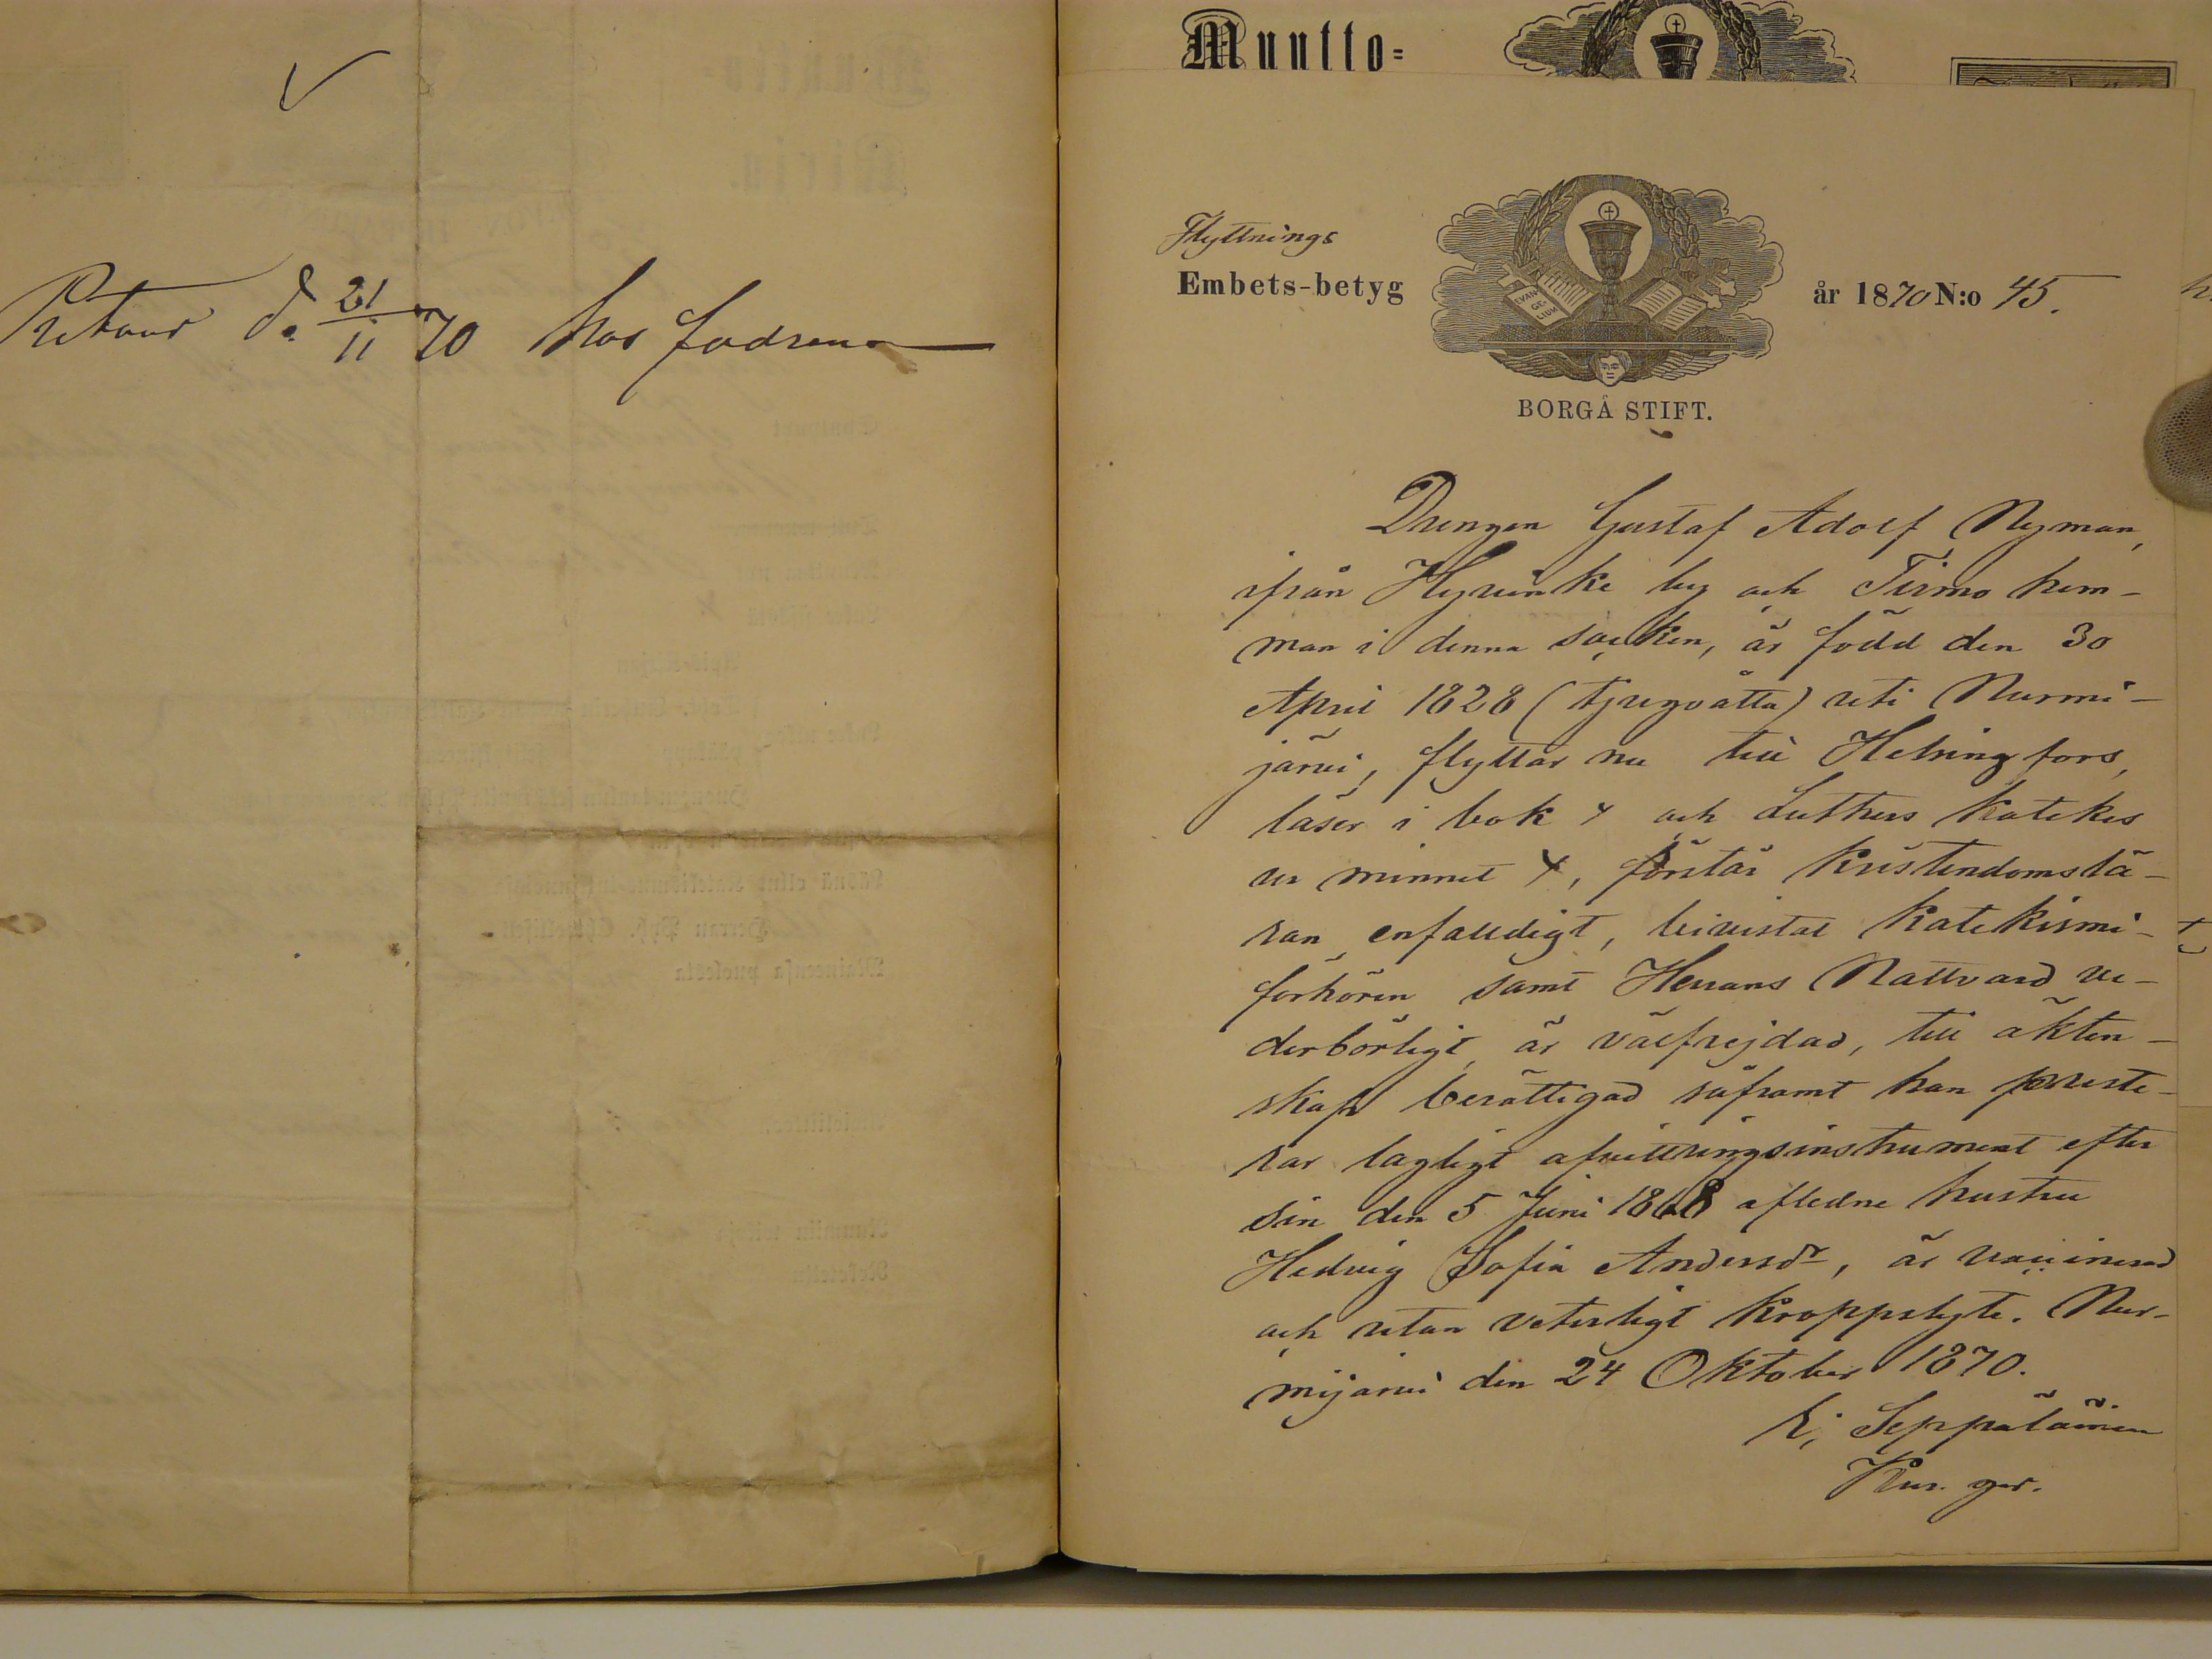 Retour d. 21/11 70 hos fadren
Muutto=
Flyttnings
Embets-betyg
år 1870 N:o 45.
EVAN
GE-
LIUM
BORGÅ STIFT.
Drengen Gustaf Adolf Nyman,
ifrån Hyvinke by och Tirmo hem-
man i denna socken, är född den 30
April 1828 (tjugoåtta) uti Nurmi-
järvi, flyttar nu till Helsingfors,
läser i bok x och Luthers katekes
ur minnet x, förstår kristendomslä-
ran enfaldigt, bivistat katekismi-
förhören samt Herrans Nattvard ve-
derbörligt, är välfrejdad, till äkten-
skap berättigad såframt han preste-
rar lagligt afvittringsinstrument efter
sin den 5 Juni 1868 aflidne hustru
Hedvig Sofia Andersdr, är vaccinerad
och utan veterligt kroppslyte. Nur-
mijärvi den 24 Oktober 1870.
Seppäläinen